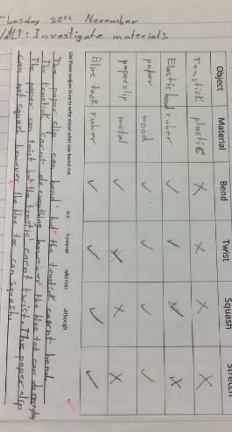 Tuesday 30th November
WALT: Investigate materials.
Object Material Bend Twist Squash Stretch
tenstick plastic X X X X
Elastic band ruber ✓ ✓ X
paper wood ✓ ✓ ✓ ✓
paperclip metal ✓ X X X
Blue tack ruber ✓ ✓ ✓ ✓
Use these conjunctions to write about what you found out.
but however whereas although
The paper clip can bend but the tenstick carnt bend.
The tenstick carnt do enything however the blue tac can do everything
The paper can twist but the tenstick carnt twist. The paper clip
can not squash however the blue tac can squash.